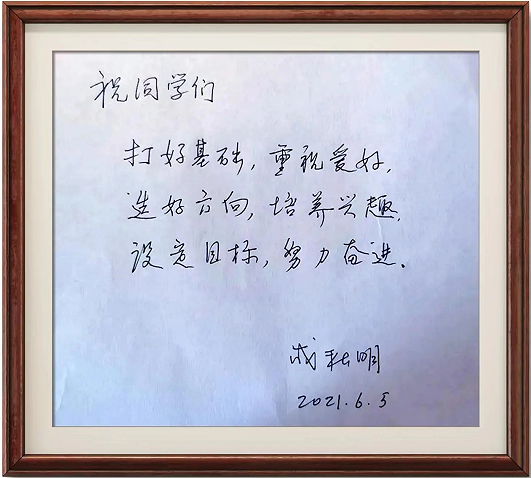 祝同学们
打好基础，重视爱好，
选好方向，培养兴趣，
设定目标，努力奋进。
成秋明
2021.6.5